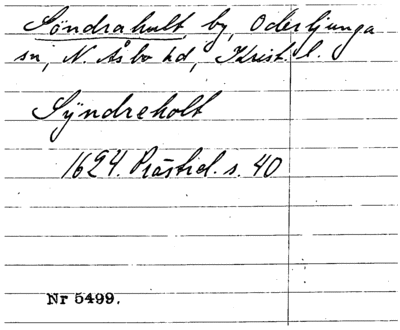 Söndrahult, by, Oderljunga
sn, N. Åsbo hd, Krist. l.
Sÿndreholt
1624. Prästrel. s. 40
Nr 5499.